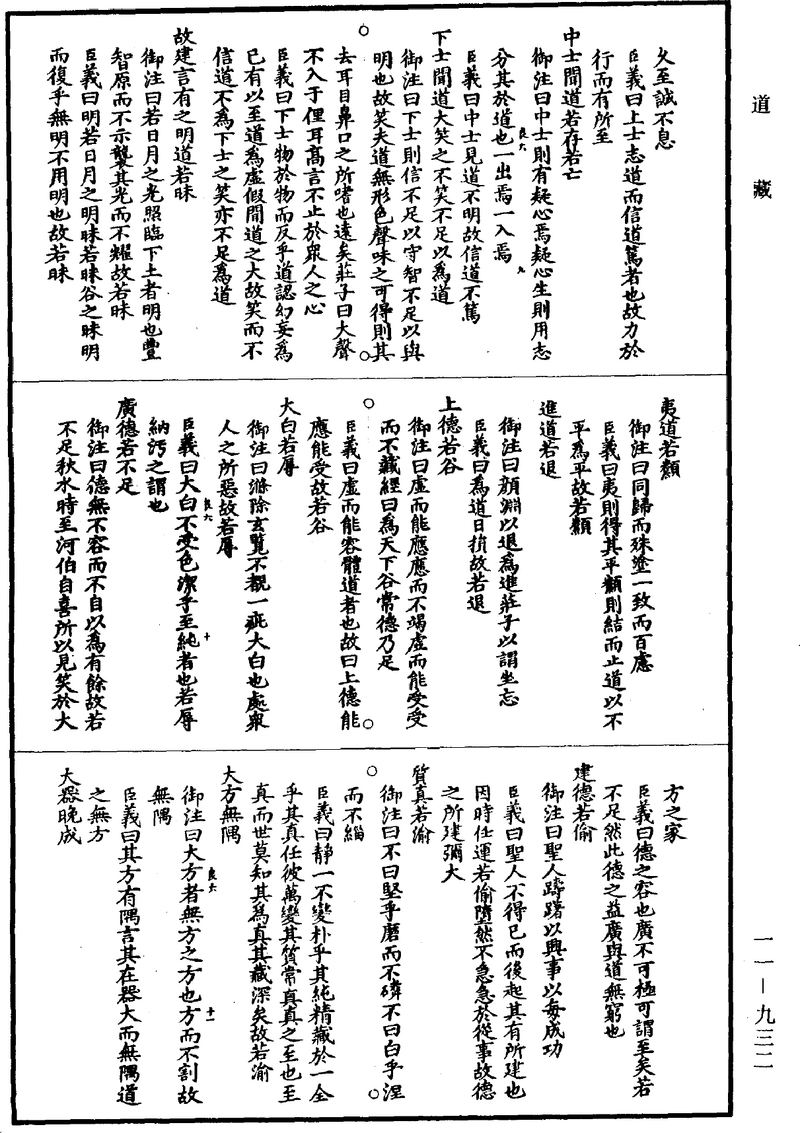 道藏
久至誠不息
臣義曰上士志道而信道篤者也故力於
行而有所至
中士聞道若存若亡
御注曰中士則有疑心焉疑心生則用志
分其於道也一出焉一入焉
良六
九
臣義曰中士見道不明故信道不篤
下士聞道大笑之不笑不足以為道
御注曰下士則信不足以守智不足以與
明也故笑夫道無形色聲味之可得則其
去耳目鼻口之所嗜也遠矣莊子曰大聲
不入于俚耳高言不止於眾人之心
臣義曰下士物於物而反乎道認幻妄為
已有以至道為虛假聞道之大故笑而不
信道不為下士之笑亦不足為道
故建言有之明道若昧
御注曰若日月之光照臨下土者明也豐
智原而不示襲其光而不耀故若昧
臣義曰明若日月之明昧若昧谷之昧明
而復乎無明不用明也故若昧
夷道若纇
御注曰同歸而殊塗一致而百慮
臣義曰夷則得其平纇則結而止道以不
平為平故若纇
進道若退
御注曰顏淵以退為進莊子以謂坐忘
臣義曰為道日損故若退
上德若谷
御注曰虛而能應應而不竭虛而能受受
而不藏經曰為天下谷常德乃足
臣義曰虛而能容體道者也故曰上德能
應能受故若谷
大白若辱
御注曰滌除玄覽不覩一疵大白也處眾
人之所惡故若辱
臣義曰大白不受色潔乎至純者也若辱
良六
十
納汚之謂也
廣德若不足
御注曰德無不容而不自以為有餘故若
不足秋水時至河伯自喜所以見笑於大
方之家
臣義曰德之容也廣不可極可謂至矣若
不足然此德之益廣與道無窮也
建德若偷
御注曰聖人躊躇以興事以每成功
臣義曰聖人不得已而後起其有所建也
因時任運若偷墮然不急急於從事故德
之所建彌大
質真若渝
御注曰不曰堅乎磨而不磷不曰白乎涅
而不緇
臣義曰靜一不變朴乎其純精藏於一全
乎其真任彼萬變其質常真真之至也至
真而世莫知其為真其藏深矣故若渝
大方無隅
御注曰大方者無方之方也方而不割故
良六
十一
無隅
臣義曰其方有隅言其在器大而無隅道
之無方
大器晚成
一一—九三二